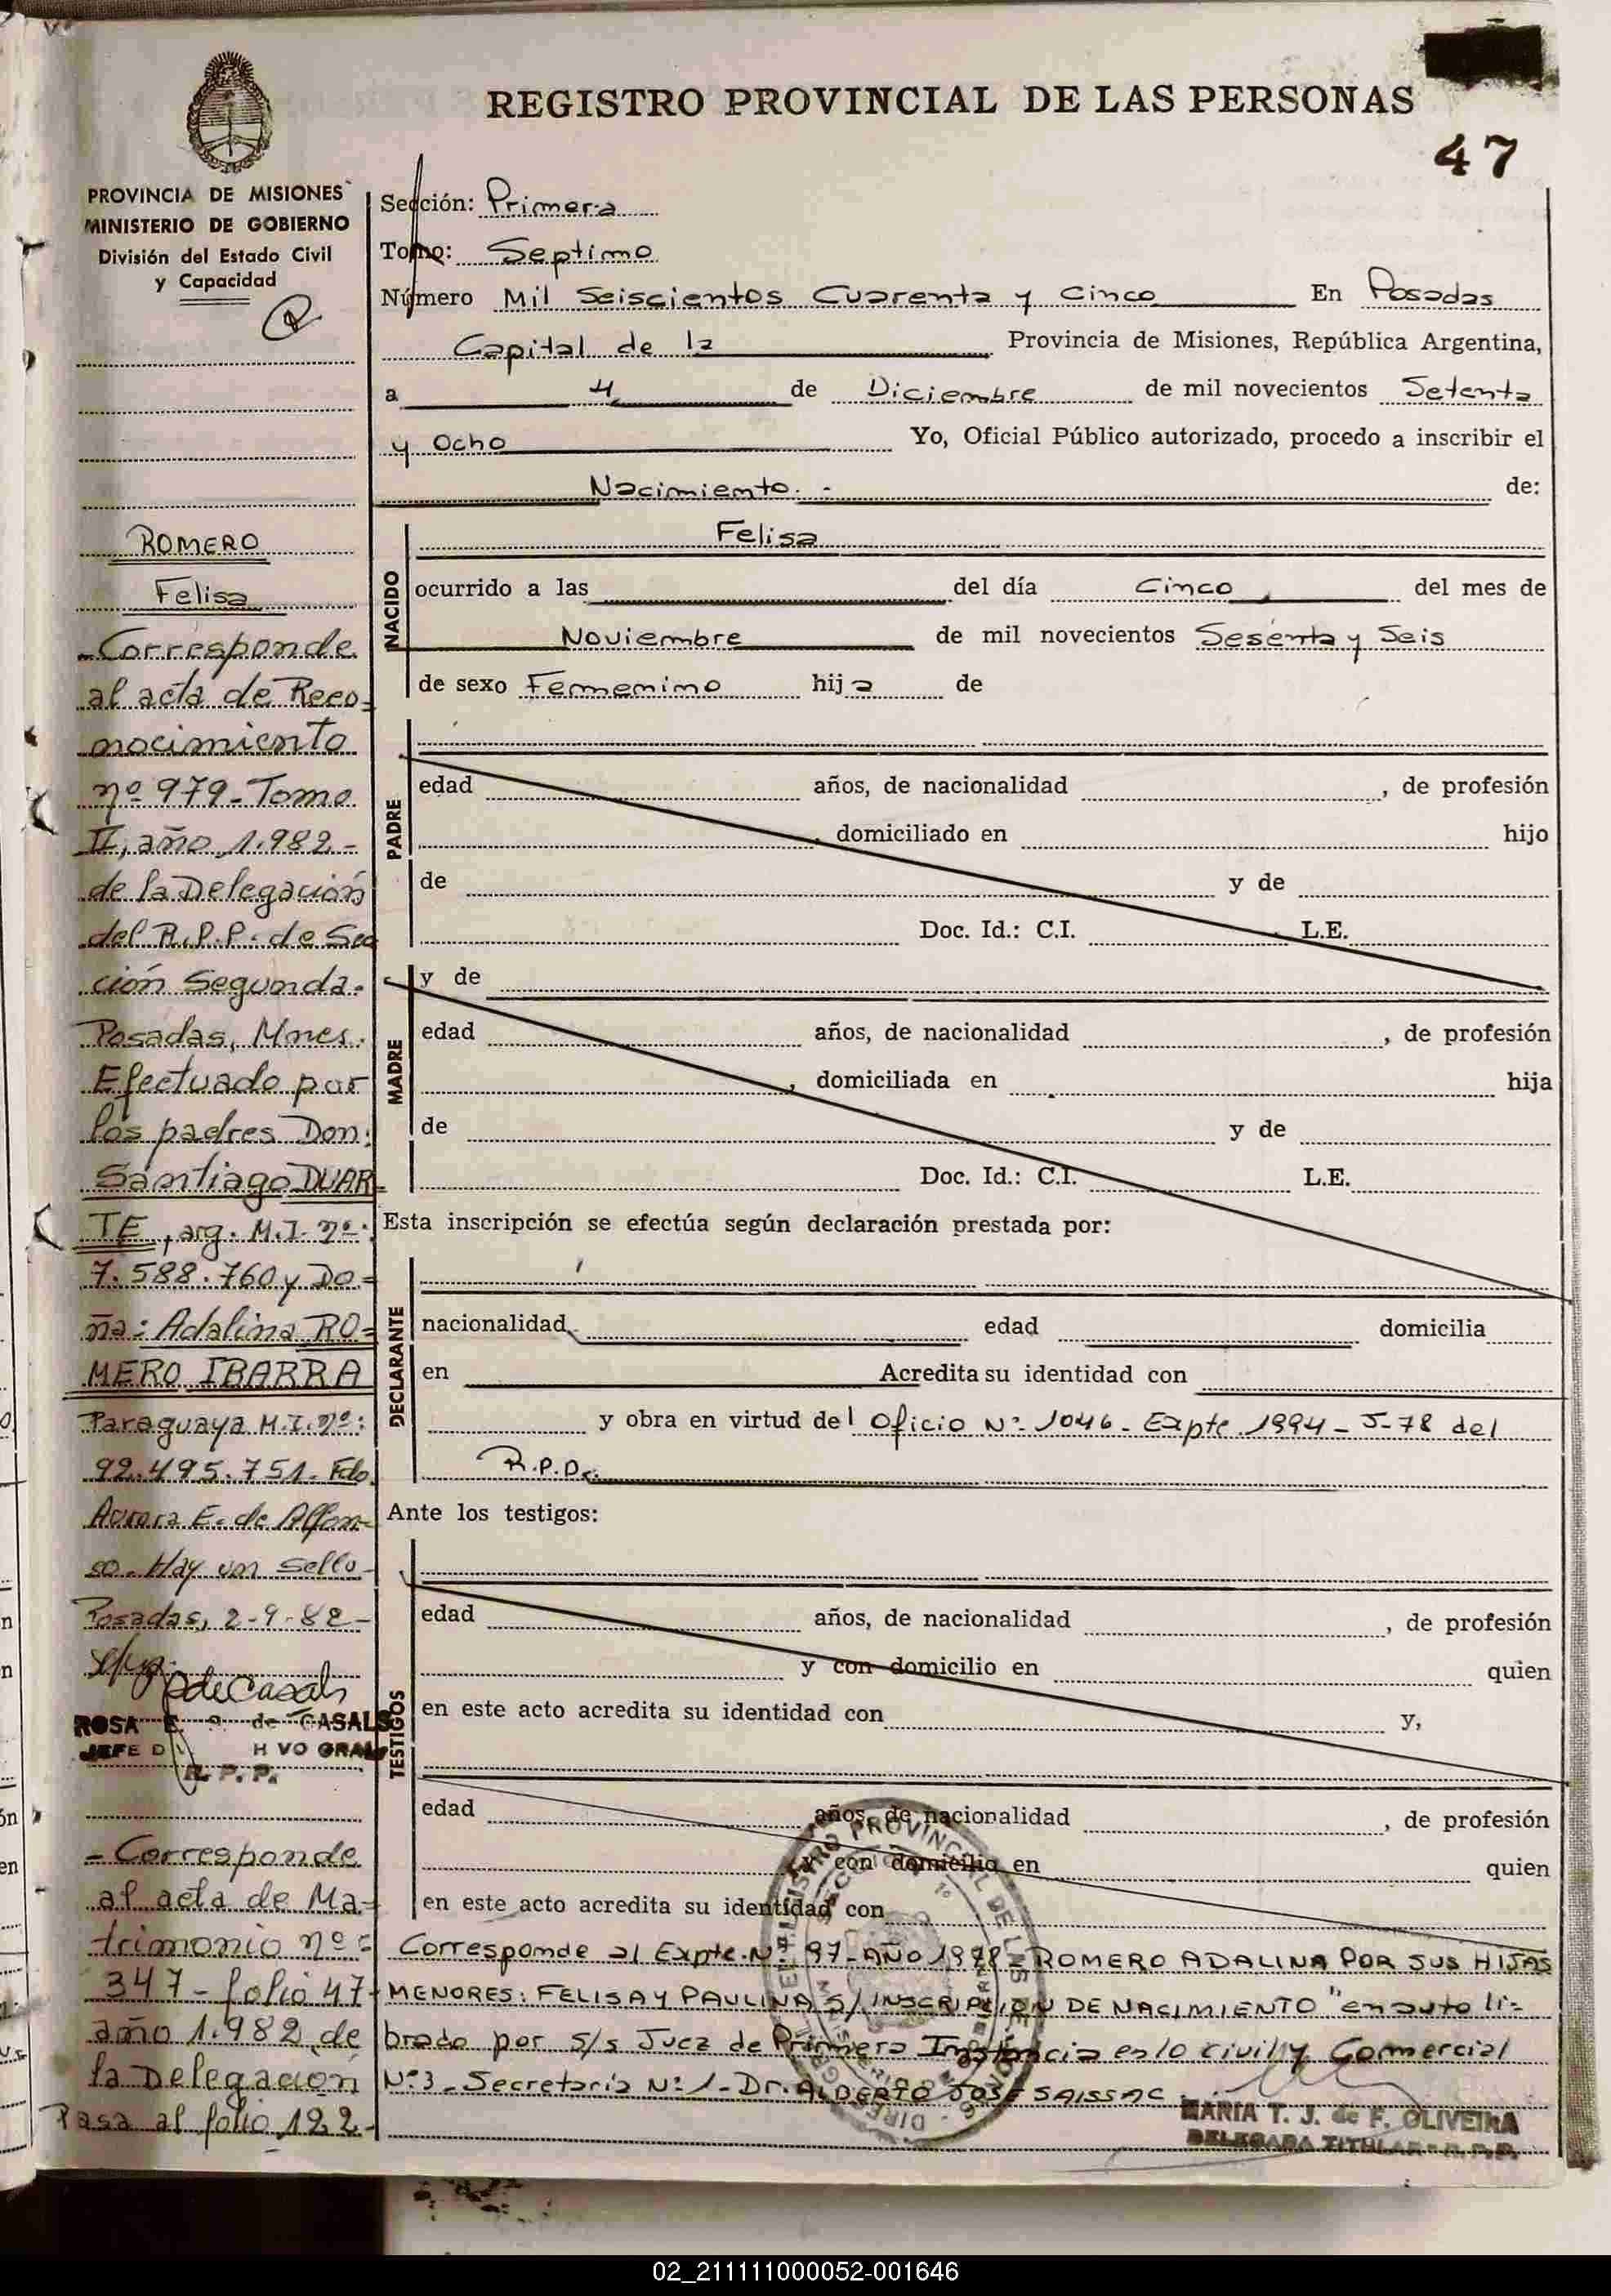 REGISTRO PROVINCIAL DE LAS PERSONAS
47
PROVINCIA DE MISIONES
MINISTERIO DE GOBIERNO
División del Estado Civil
y Capacidad
ROMERO
Felisa
- Corresponde
al acta de Reco-
nocimiento
nº 979 - Tomo
II, año 1.982 -
de la Delegación
del R.P.P. de Sec
ción Segunda.
Posadas, Mnes.
Efectuado por
los padres Don:
Santiago DUAR-
TE, arg. M.I. nº:
7.588.760 y Do=
ña: Adalina RO=
MERO IBARRA
Paraguaya M.I. nº:
92.495.751. Fdo.
Aurora E. de Alfon-
so. Hay un sello -
Posadas, 2-9-82 -
ROSA E. de CASALS
R. P. P.
- Corresponde
al acta de Ma=
trimonio nº =
347 - folio 47 -
año 1.982 de
la Delegación
Pasa al folio 122 -
Sección: Primera
Tomo: Septimo
Número Mil Seiscientos Cuarenta y Cinco En Posadas
Capital de la Provincia de Misiones, República Argentina,
a 4 de Diciembre de mil novecientos Setenta
y Ocho Yo, Oficial Público autorizado, procedo a inscribir el
Nacimiento. - de:
NACIDO
Felisa
ocurrido a las del día Cinco del mes de
Noviembre de mil novecientos Sesenta y Seis
de sexo Femenino hija de
PADRE
edad años, de nacionalidad , de profesión
domiciliado en hijo
de y de
Doc. Id.: C.I. L.E.
MADRE
y de
edad años, de nacionalidad , de profesión
, domiciliada en hija
de y de
Doc. Id.: C.I. L.E.
Esta inscripción se efectúa según declaración prestada por:
DECLARANTE
nacionalidad edad domicilia
en Acredita su identidad con
y obra en virtud del Oficio Nº 1046 - Expte. 1994 - J-78 del
R.P.P.
Ante los testigos:
TESTIGOS
edad años, de nacionalidad , de profesión
y con domicilio en quien
en este acto acredita su identidad con y,
edad años, de nacionalidad , de profesión
y con domicilio en quien
en este acto acredita su identidad con
Corresponde al Expte. Nº 97 - AÑO 1978 - ROMERO ADALINA POR SUS HIJAS
MENORES: FELISA Y PAULINA S/ INSCRIPCION DE NACIMIENTO " en auto li-
brado por S/S Juez de Primera Instancia en lo civil y Comercial
Nº 3 - Secretaría Nº 1 - Dr. ALBERTO JOSE SAISSAC.
MARIA T. J. de F. OLIVEIRA
DELEGADA TITULAR - R.P.P.
02_211111000052-001646